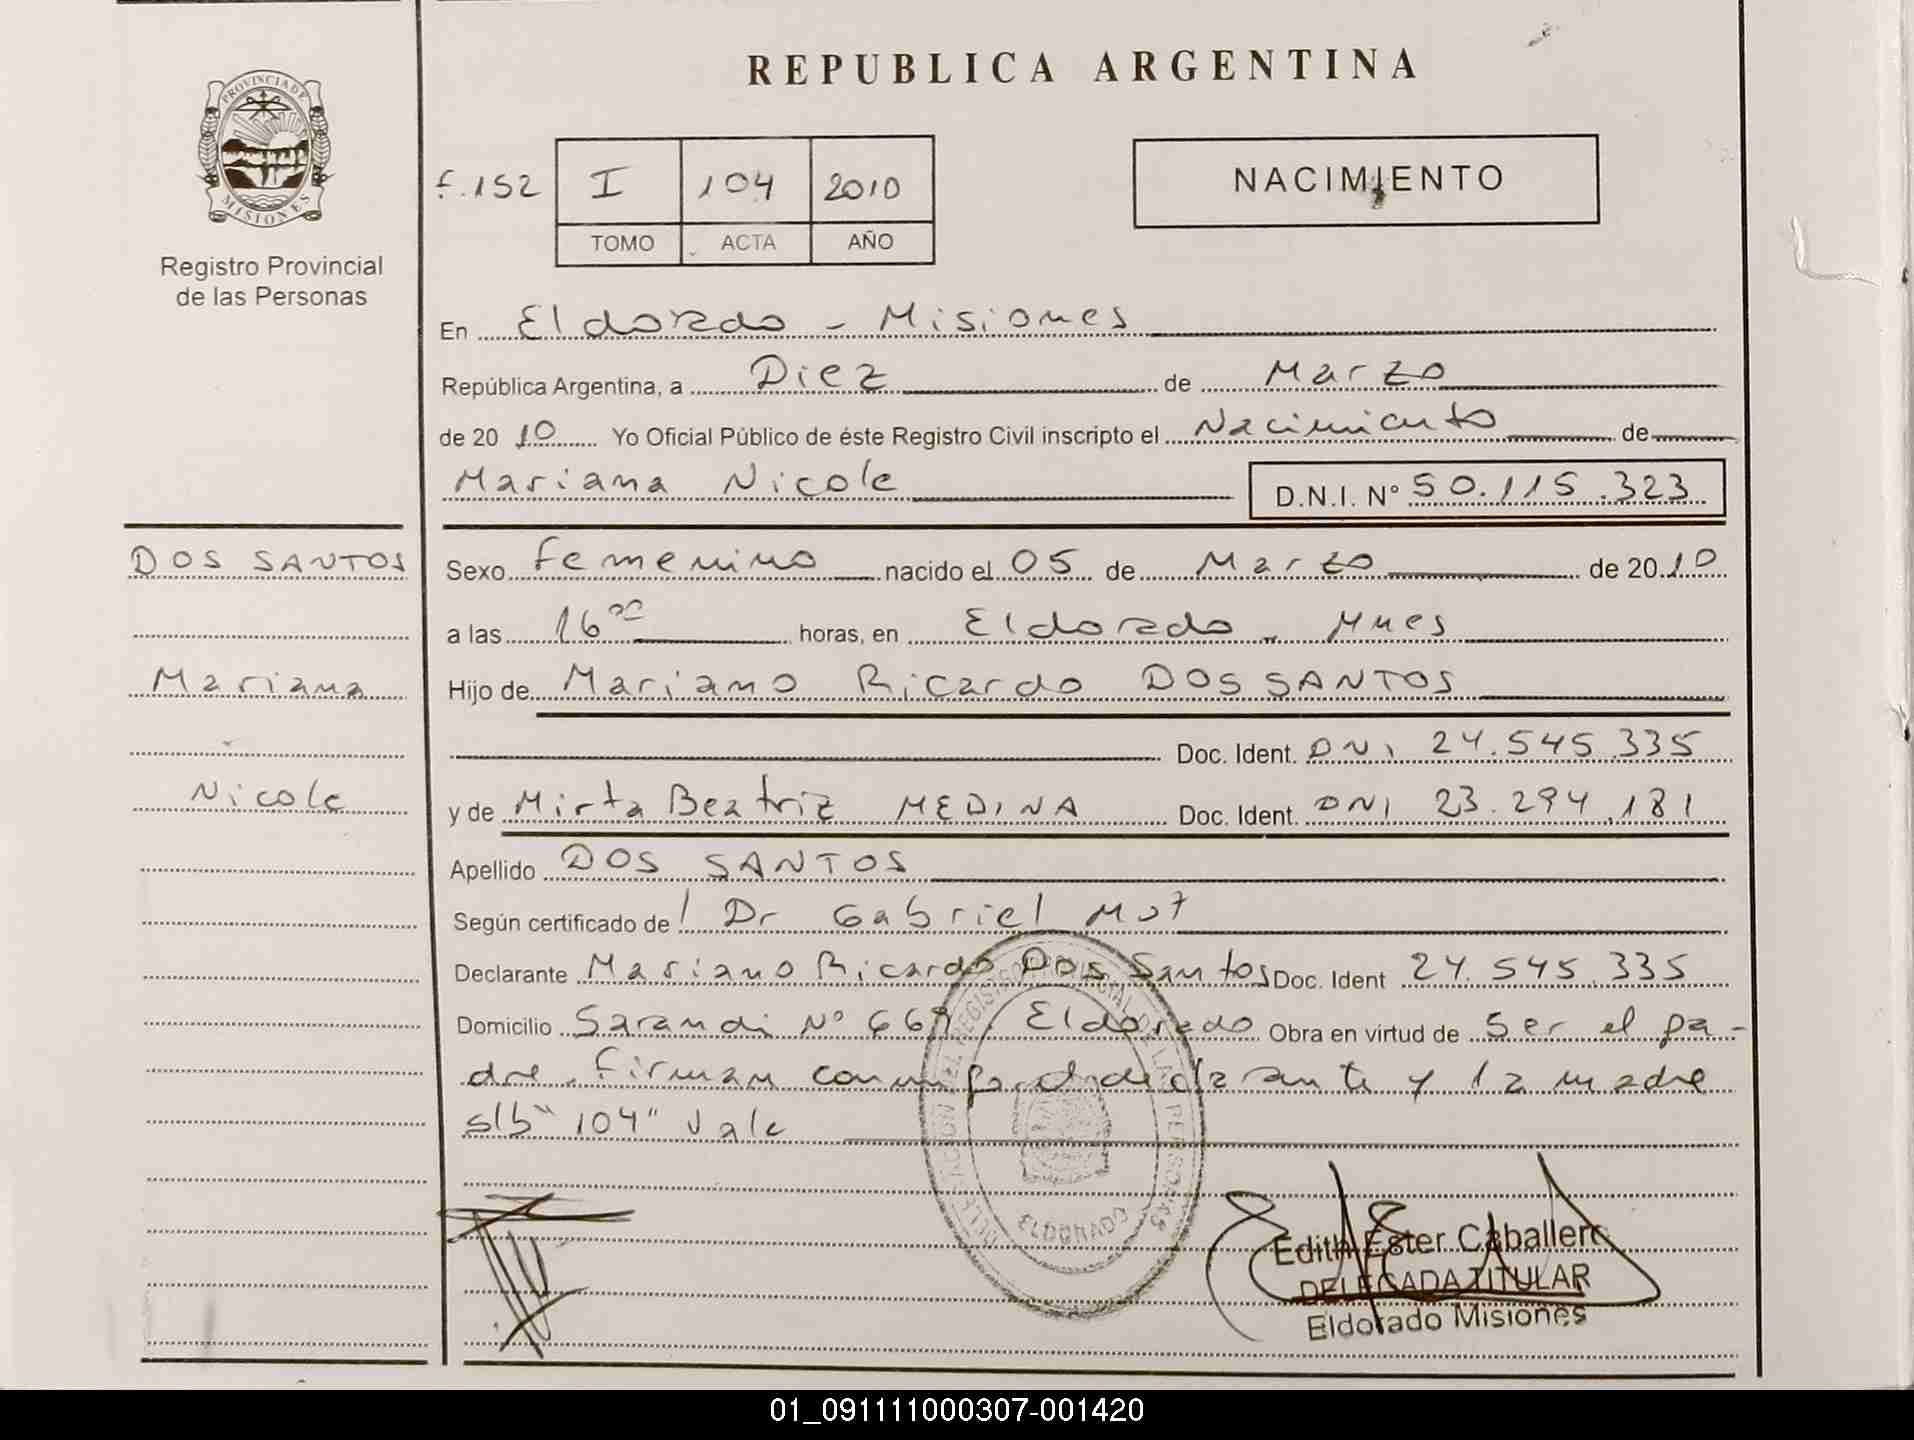 REPUBLICA ARGENTINA
PROVINCIA DE
MISIONES
Registro Provincial
de las Personas
f.152 I 104 2010
TOMO ACTA AÑO
NACIMIENTO
En Eldorado - Misiones
República Argentina, a Diez de Marzo
de 20 10 Yo Oficial Público de éste Registro Civil inscripto el Nacimiento de
Mariana Nicole D.N.I. Nº 50.115.323
DOS SANTOS
Mariana
Nicole
Sexo femenino nacido el 05 de Marzo de 20 10
a las 16 00 horas, en Eldorado - Mnes
Hijo de Mariano Ricardo DOS SANTOS
Doc. Ident. DNI 24.545.335
y de Mirta Beatriz MEDINA Doc. Ident. DNI 23.294.181
Apellido DOS SANTOS
Según certificado de Dr Gabriel
Declarante Mariano Ricardo Dos Santos Doc. Ident 24.545.335
Domicilio Sarandi Nº 669. Eldorado Obra en virtud de Ser el pa-
dre. Firman conmigo el declarante y la madre
s/b "104" Vale
ELDORADO
Edith Ester Caballero
DELEGADA TITULAR
Eldorado Misiones
01_091111000307-001420